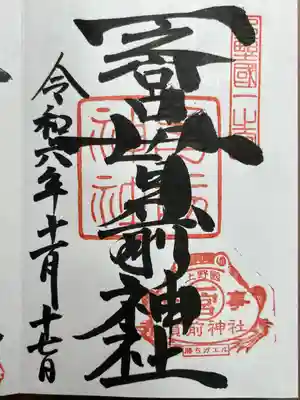 上野國一之宮
一之宮貫前神社
上野國
貫前神社
勝ちガエル
令和六年十一月十七日